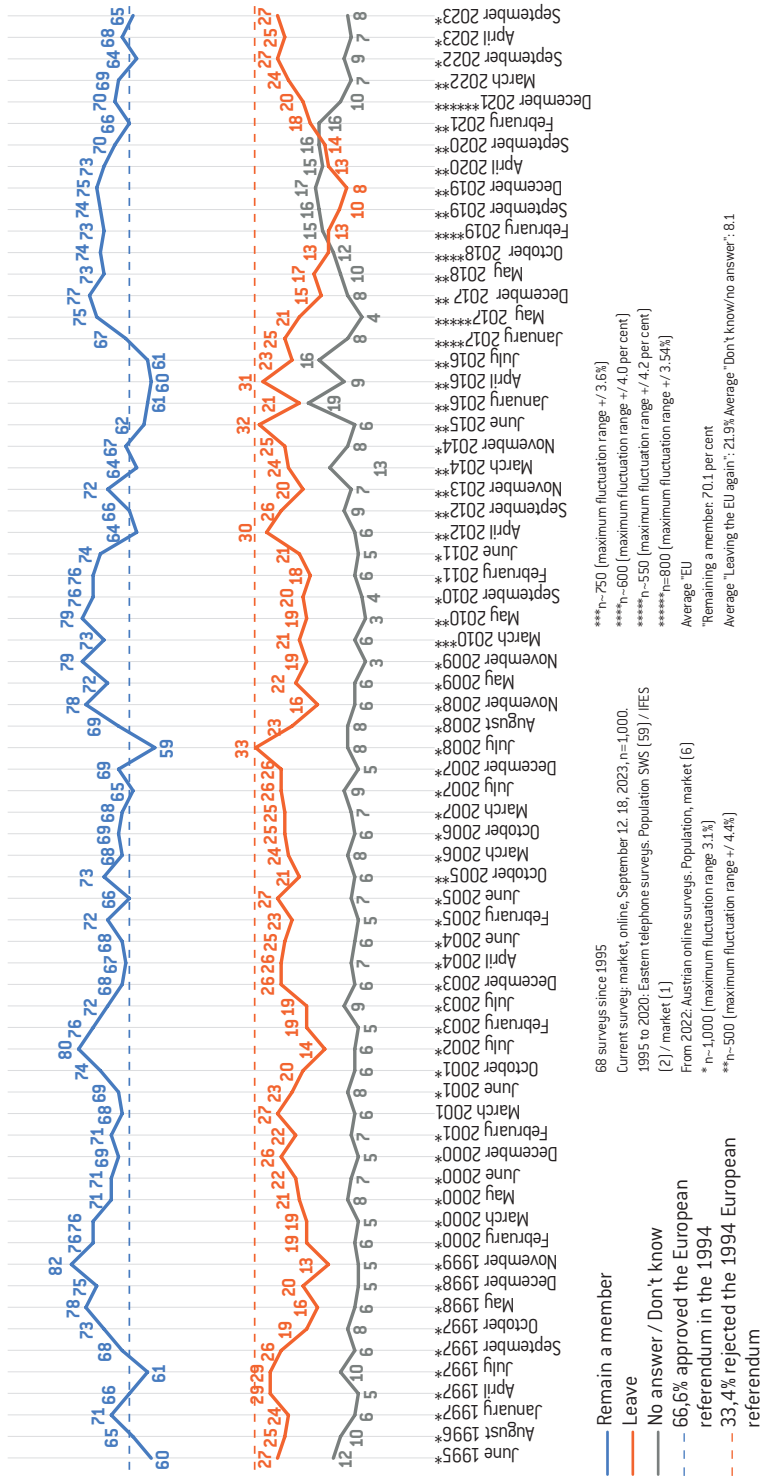 60 65 71 66 61 68 73 78 75 82 76 76 71 71 69 71 68 69 74 80 76 72 68 67 68 72 66 73 68 69 68 65 69 59 69 78 72 79 73 79 76 76 74 64 66 72 64 67 62 61 60 61 67 75 77 73 74 73 74 75 73 70 66 70 69 64 68 65
27 25 24 29 29 26 19 16 20 13 19 19 21 22 26 22 27 23 20 14 19 19 26 26 25 23 27 21 24 25 25 26 26 33 23 16 22 19 21 19 20 18 21 30 26 20 24 25 32 21 31 23 25 21 15 17 13 13 10 8 13 14 18 20 24 27 25 27
12 10 6 5 10 6 8 6 5 5 6 5 8 7 5 7 6 8 6 6 5 9 6 7 6 5 7 6 8 6 7 9 5 8 8 6 6 3 6 3 4 6 5 6 9 7 13 8 6 19 9 16 8 4 8 10 12 15 16 17 15 16 16 10 7 9 7 8
June 1995*
August 1996
January 1997*
April 1997*
July 1997*
September 1997*
October 1997*
May 1998*
December 1998*
November 1999*
February 2000*
March 2000*
May 2000*
June 2000*
December 2000*
February 2001*
March 2001
June 2001*
October 2001*
July 2002*
February 2003*
July 2003*
December 2003*
April 2004*
June 2004*
February 2005*
June 2005*
October 2005**
March 2006*
October 2006*
March 2007*
July 2007*
December 2007*
July 2008*
August 2008*
November 2008*
May 2009*
November 2009*
March 2010***
May 2010**
September 2010*
February 2011*
June 2011*
April 2012**
September 2012**
November 2013**
March 2014**
November 2014*
June 2015**
January 2016**
April 2016**
July 2016**
January 2017****
May 2017******
December 2017 **
May 2018**
October 2018****
February 2019****
September 2019**
December 2019**
April 2020**
September 2020**
February 2021**
December 2021******
March 2022**
September 2022*
April 2023*
September 2023*
Remain a member
Leave
No answer / Don't know
66,6% approved the European
referendum in the 1994
33,4% rejected the 1994 European
referendum
68 surveys since 1995
Current survey: market, online, September 12. 18, 2023, n=1,000.
1995 to 2020: Eastern telephone surveys. Population SWS (59) / IFES
(2) / market (1)
From 2022: Austrian online surveys. Population, market (6)
* n~1,000 (maximum fluctuation range 3.1%)
**n~500 (maximum fluctuation range +/ 4.4%)
***n~750 (maximum fluctuation range +/ 3.6%)
****n~600 (maximum fluctuation range +/ 4.0 per cent)
*****n~550 (maximum fluctuation range +/ 4.2 per cent)
******n=800 (maximum fluctuation range +/ 3.54%)
Average "EU
"Remaining a member: 70.1 per cent
Average "Leaving the EU again": 21.9% Average "Don't know/no answer": 8.1